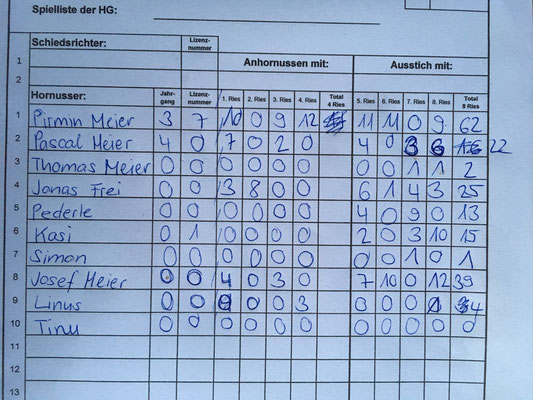 Spielliste der HG:
Schiedsrichter: Lizenz-nummer
Anhornussen mit: Ausstich mit:
1
2
Hornusser: Jahr-gang Lizenz-nummer 1. Ries 2. Ries 3. Ries 4. Ries Total 4 Ries 5. Ries 6. Ries 7. Ries 8. Ries Total 8 Ries
1 Pirmin Meier 3 7 10 0 9 12 11 11 0 9 62
2 Pascal Meier 4 0 7 0 2 0 4 0 3 6 22
3 Thomas Meier 0 0 0 0 0 0 0 0 1 1 2
4 Jonas Frei 0 0 3 8 0 0 6 1 4 3 25
5 Pederle 0 0 0 0 0 0 4 0 9 0 13
6 Kasi 0 1 0 0 0 0 2 0 3 10 15
7 Simon 0 0 0 0 0 0 0 0 1 0 1
8 Josef Meier 0 0 4 0 3 0 7 10 0 12 39
9 Linus 0 0 0 0 3 0 0 0 4
10 Tinu 0 0 0 0 0 0 0 0 0 0 0
11
12
13